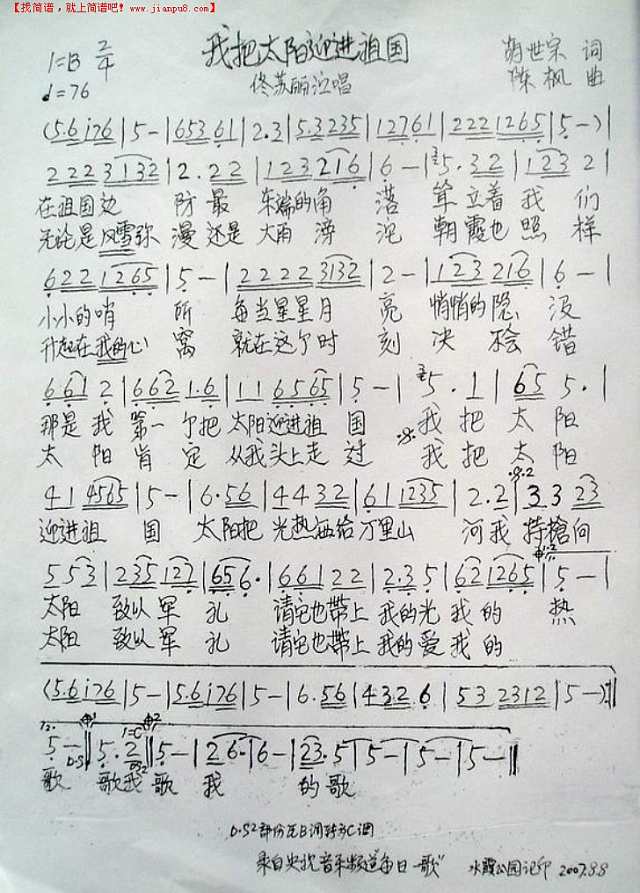 【找简谱,就上简谱吧! www.jianpu8.com】
我把太阳迎进祖国
胡世宗 词
1=B 2/4
佟苏丽演唱
陈枫 曲
♩=76
(5.6 i76 | 5 - | 653 61 | 2.3 | 5.3 235 | 127 61 | 222 1265 | 5 - ) |
222 3132 | 2.22 | 123 216 | 6 - | 5.32 | 123 2 |
在祖国边 防最 东端的角 落 耸立着我 们
无论是风雪弥 漫还是 大雨滂 沱 朝霞也照 样
622 1265 | 5 - | 2222 3132 | 2 - | 123 216 | 6 - |
小小的哨 所 每当星星月 亮 悄悄的隐 没
升起在我的心 窝 就在这个时 刻 决不会 错
661 2 | 662 1.6 | 11 6565 | 5 - | 5.1 | 65 5. |
那是我 第一个把 太阳迎进祖 国 我把太阳
太阳肯定 从我头上走过 我把太阳
41 4565 | 5 - | 6.56 | 4432 | 61 1235 | 2.2 | 33 23 |
迎进祖 国 太阳把 光热洒给万里山 河我 持枪向
553 | 235 127 | 656. | 661 22 | 2.35 | 62 1265 | 5 - |
太阳 致以军 礼 请它也带上 我的光我的 热
太阳 致以军 礼 请它也带上 我的爱我的
(5.6 i76 | 5 - | 5.6 i76 | 5 - | 6.56 | 432 6 | 53 2312 | 5 - ) ‖
1=C
5 - ‖ 5.2 ‖ 5 - | 26. | 6 - | 23.5 | 5 - | 5 - | 5 - ‖
D.S D.S2
歌 歌我 歌 我 的歌
D.S2部份先B调转为C调
来自央视音乐频道"每日一歌" 水霞公园记印 2007.9.8